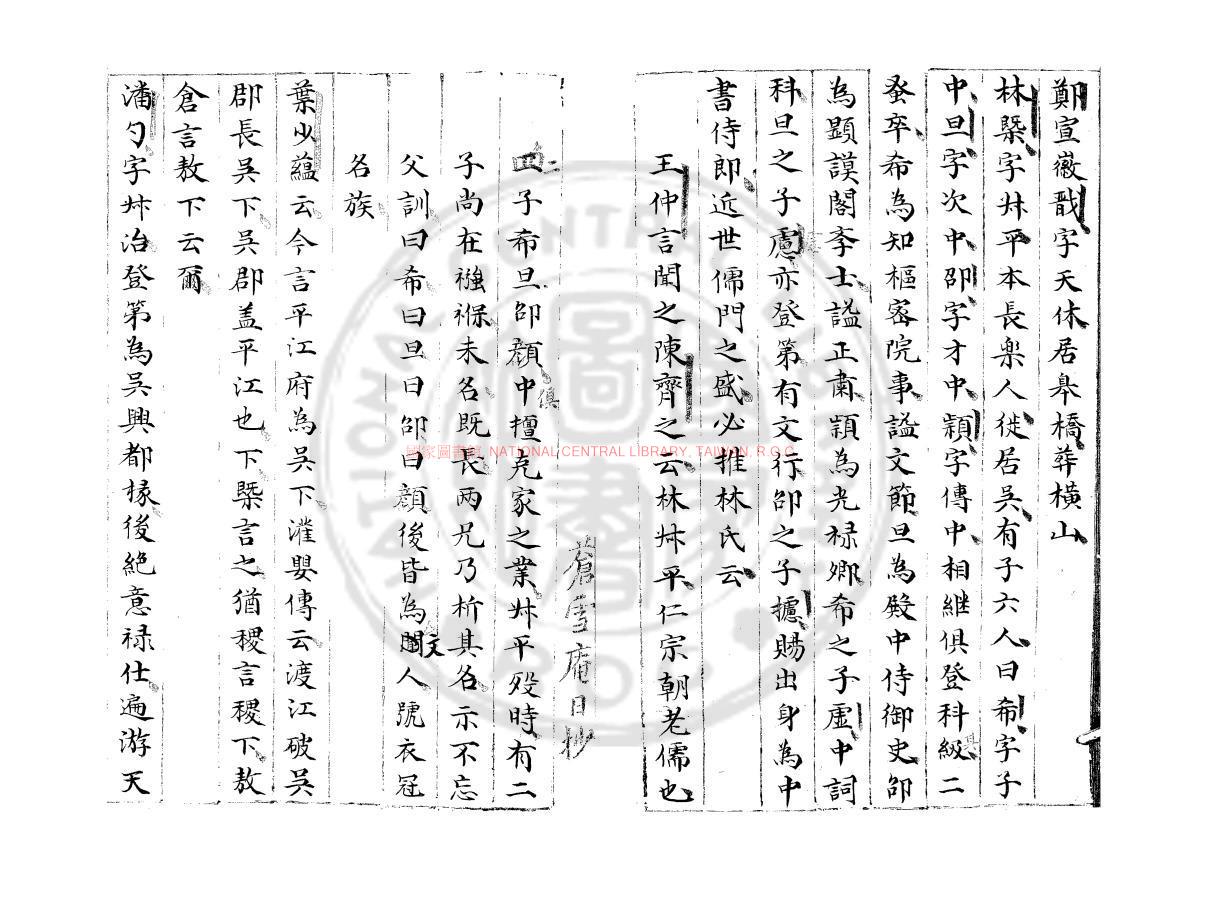 鄭宣徽戩字天休居臯橋葬橫山
林槩字叔平本長樂人徙居吳有子六人曰希字子
中旦字次中邵字才中顈字傳中相繼俱登科級二
蚤卒希為知樞宻院事謚文節旦為殿中侍御史邵
為顕謨閣李士謚正肅顈為光禄卿希之子虛中詞
科旦之子慮亦登第有文行邵之子攄賜出身為中
書侍郎近世儒門之盛必推林氏云
王仲言聞之陳齊之云林叔平仁宗朝老儒也
蒼雪庵日抄
四子希旦邵顔中擅克家之業叔平殁時有二
俱
子尚在襁褓未名既長两兄乃析其名示不忘
父訓曰希曰旦曰邵曰顔後皆為聞人號衣冠
文
名族
葉少蘊云今言平江府為吳下灌嬰傳云渡江破吳
郡長吳下吳郡盖平江也下槩言之猶稷言稷下敖
倉言敖下云爾
潘勺字叔治登第為吳興都掾後絶意禄仕遍游天
國家圖書館 NATIONAL CENTRAL LIBRARY, TAIWAN, R.O.C.